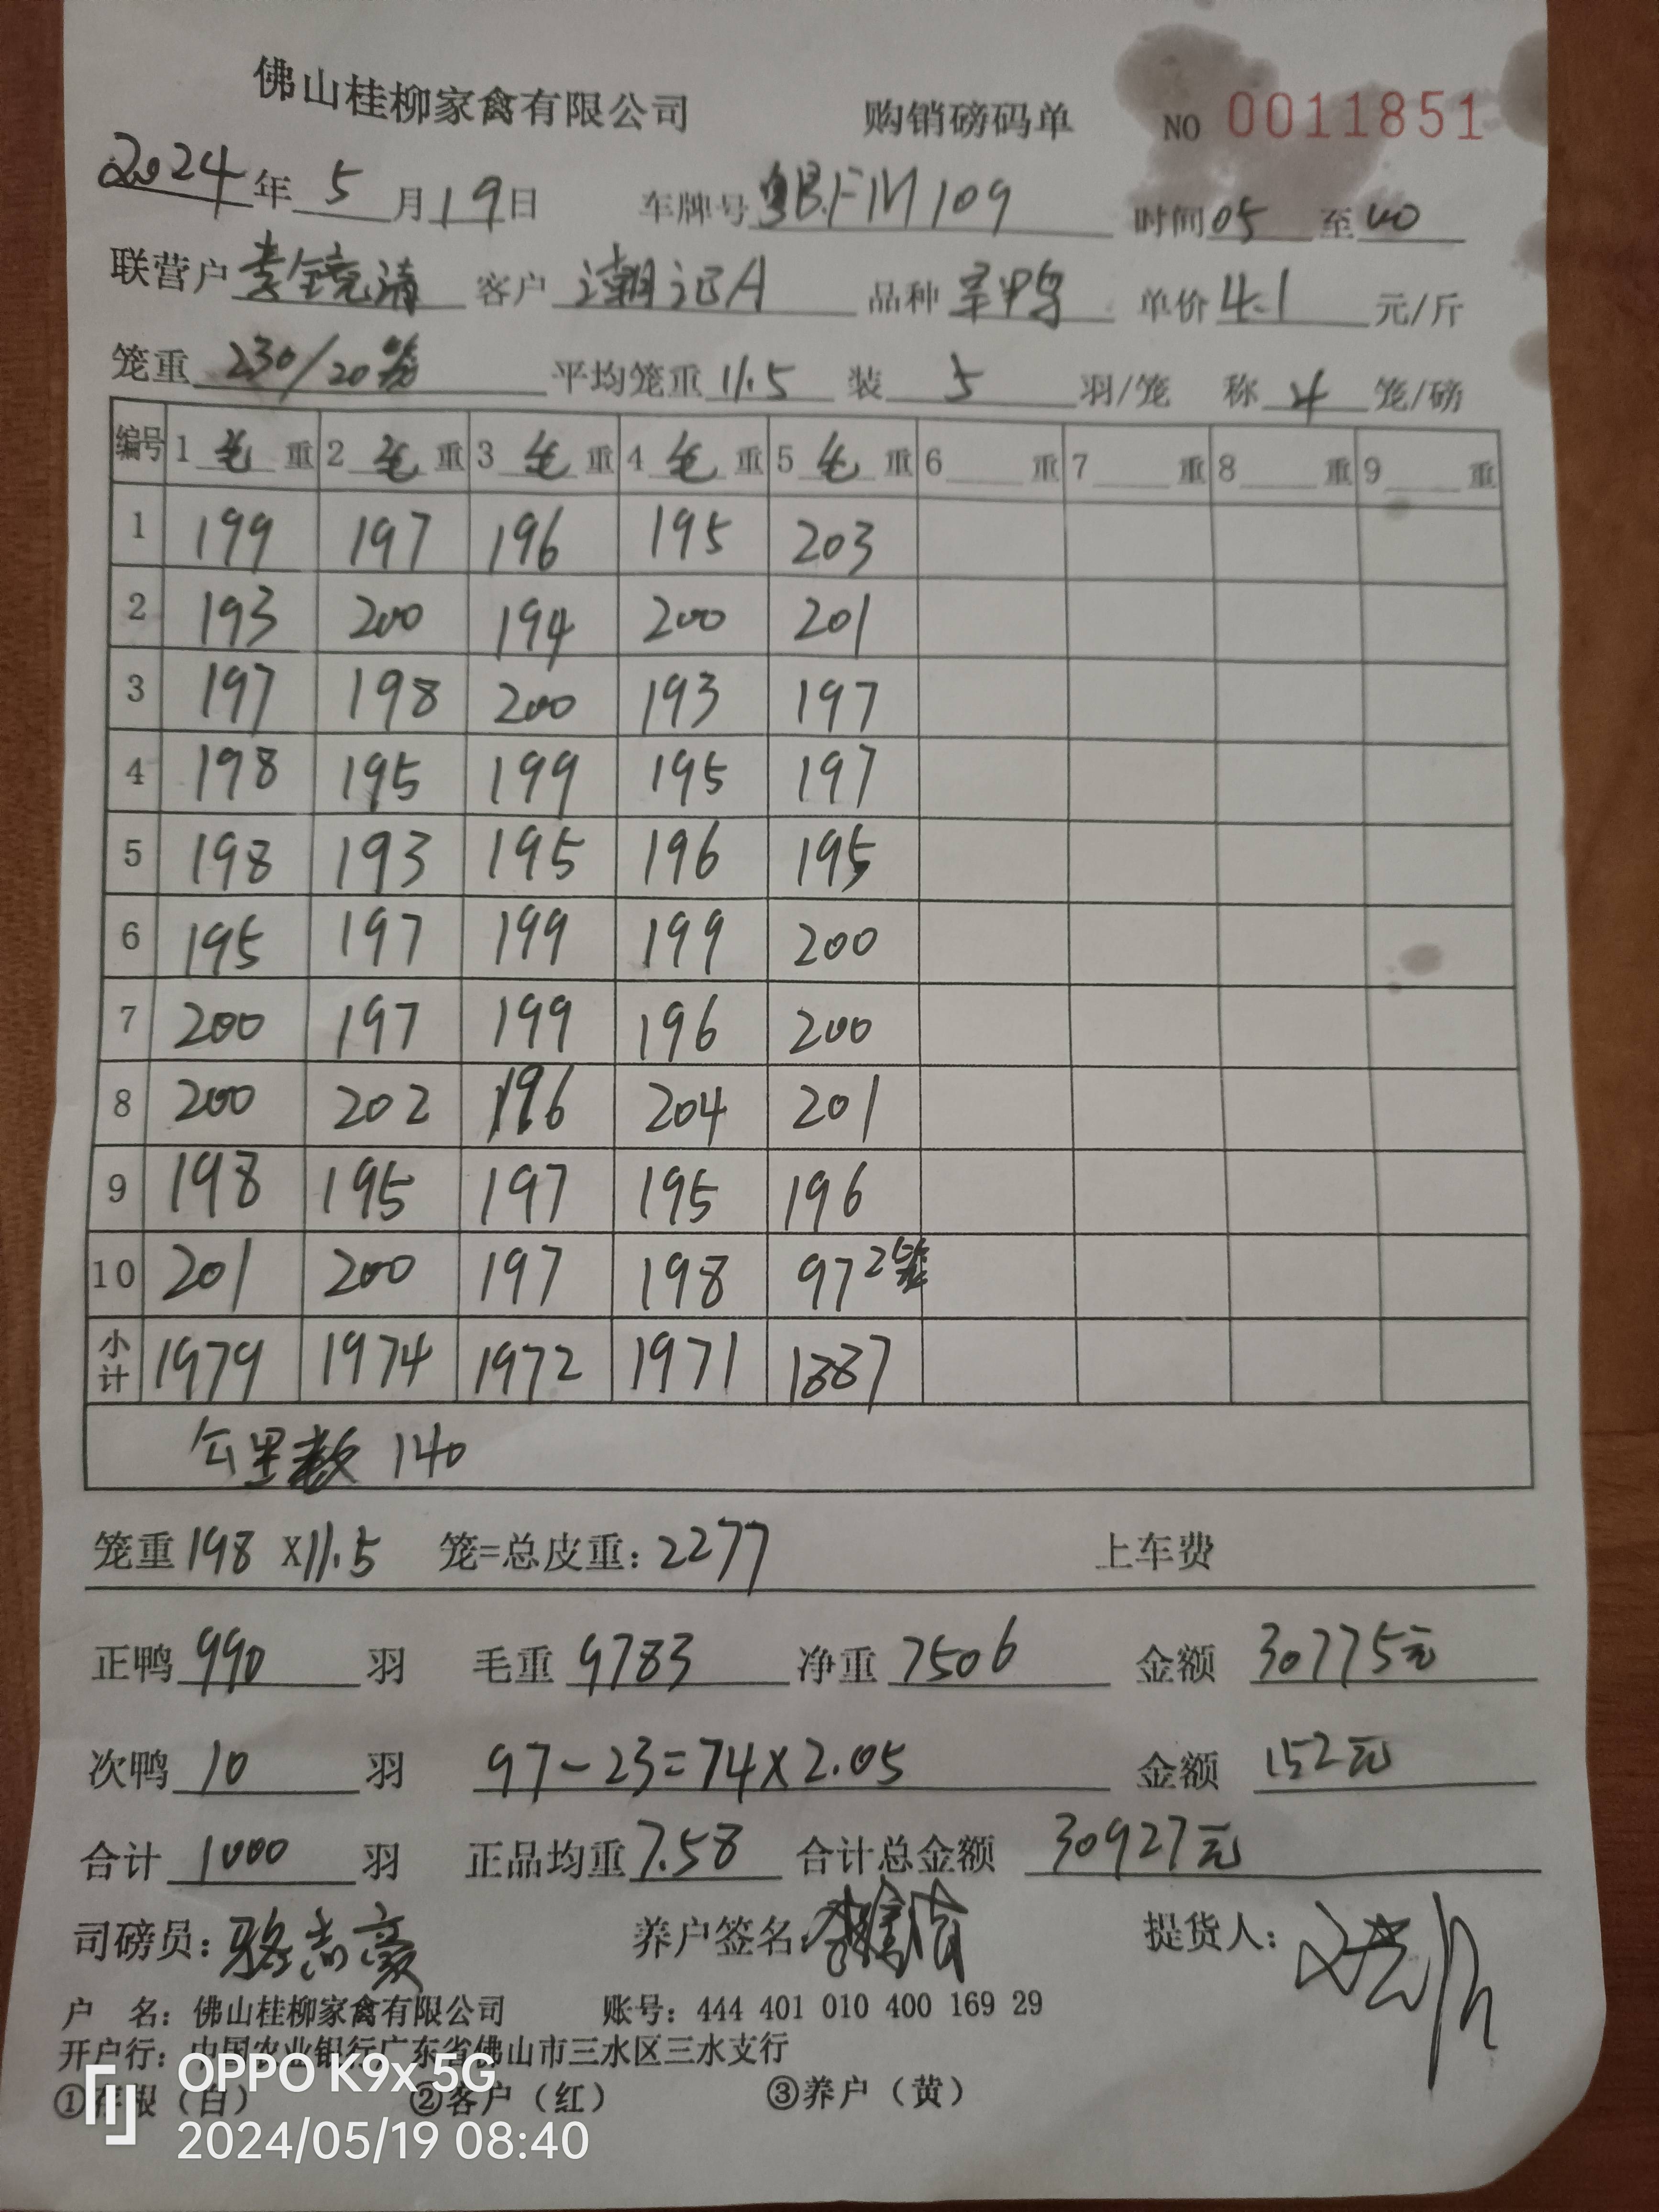 佛山桂柳家禽有限公司 购销磅码单 NO 0011851
2024年 5 月 19日 车牌号 粤B.FM109 时间 05 至 40
联营户 李镜清 客户 潮记A 品种 单价 4.1 元/斤
笼重 230/20笼 平均笼重 11.5 装 5 羽/笼 称 4 笼/磅
编号 1 毛 重 2 毛 重 3 毛 重 4 毛 重 5 毛 重 6 重 7 重 8 重 9 重
1 199 197 196 195 203
2 193 200 194 200 201
3 197 198 200 193 197
4 198 195 199 195 197
5 198 193 195 196 195
6 195 197 199 199 200
7 200 197 199 196 200
8 200 202 196 204 201
9 198 195 197 195 196
10 201 200 197 198 97 2笼
小计 1979 1974 1972 1971 1887
公里数 140
笼重 198 X11.5 笼=总皮重：2277 上车费
正鸭 990 羽 毛重 9783 净重 7506 金额 30775元
次鸭 10 羽 97-23=74×2.05 金额 152元
合计 1000 羽 正品均重 7.58 合计总金额 30927元
司磅员：骆志豪 养户签名： 提货人：
户 名：佛山桂柳家禽有限公司 账号：444 401 010 400 169 29
开户行：中国农业银行广东省佛山市三水区三水支行
①存根（白） ②客户（红） ③养户（黄）
OPPO K9x 5G
2024/05/19 08:40